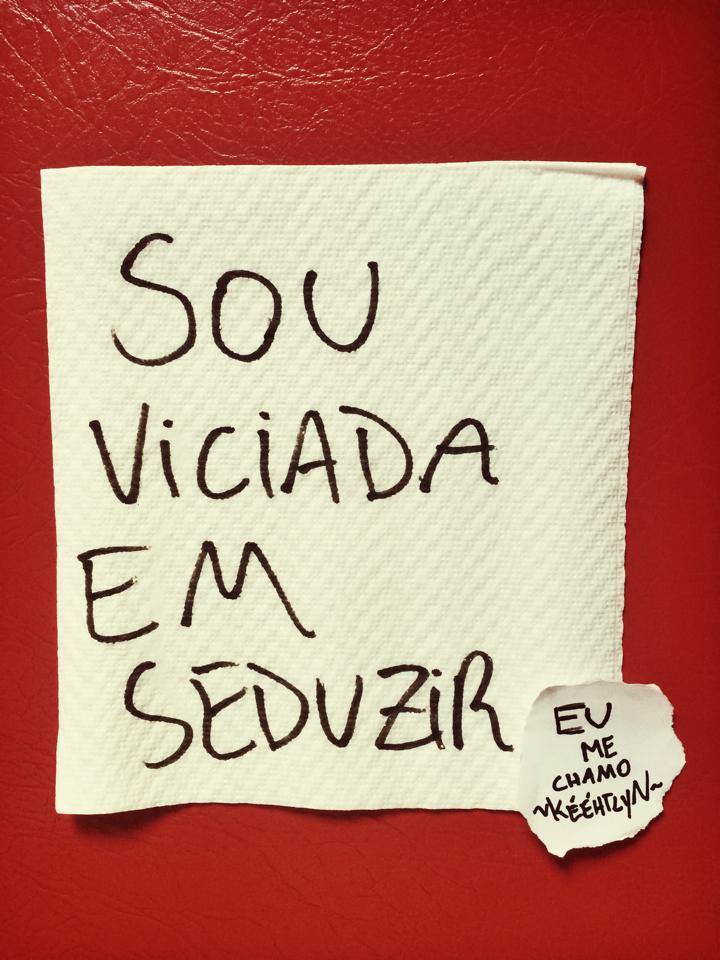 SOU
ViCiADA
EM
SEDUZiR
EU
ME
CHAMO
~KÉÉHTLYN~